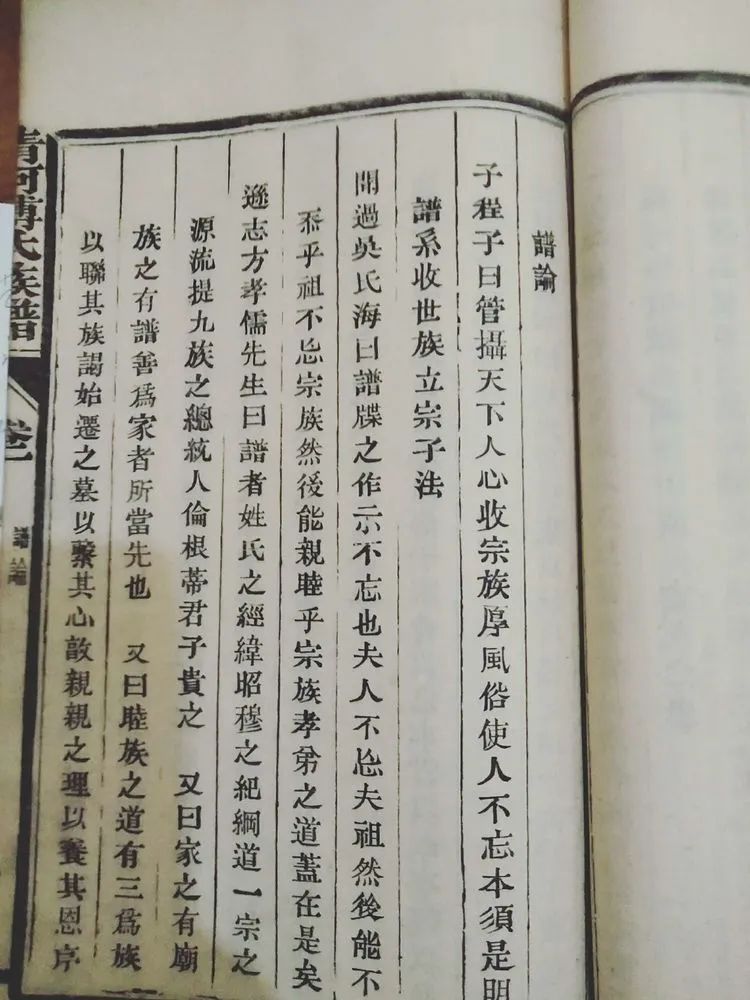 譜論
子程子曰管攝天下人心收宗族厚風俗使人不忘本須是明
譜系收世族立宗子法
開過吳氏海曰譜牒之作示不忘也夫人不忘夫祖然後能不
忝乎祖不忘宗族然後能親睦乎宗族孝弟之道蓋在是矣
遜志方孝儒先生曰譜者姓氏之經緯昭穆之紀綱道一宗之
源流提九族之總統人倫根蒂君子貴之 又曰家之有廟
族之有譜善爲家者所當先也 又曰睦族之道有三爲族
以聯其族謁始遷之墓以繫其心敦親親之理以養其恩序
清河傅氏族譜
卷一
譜論